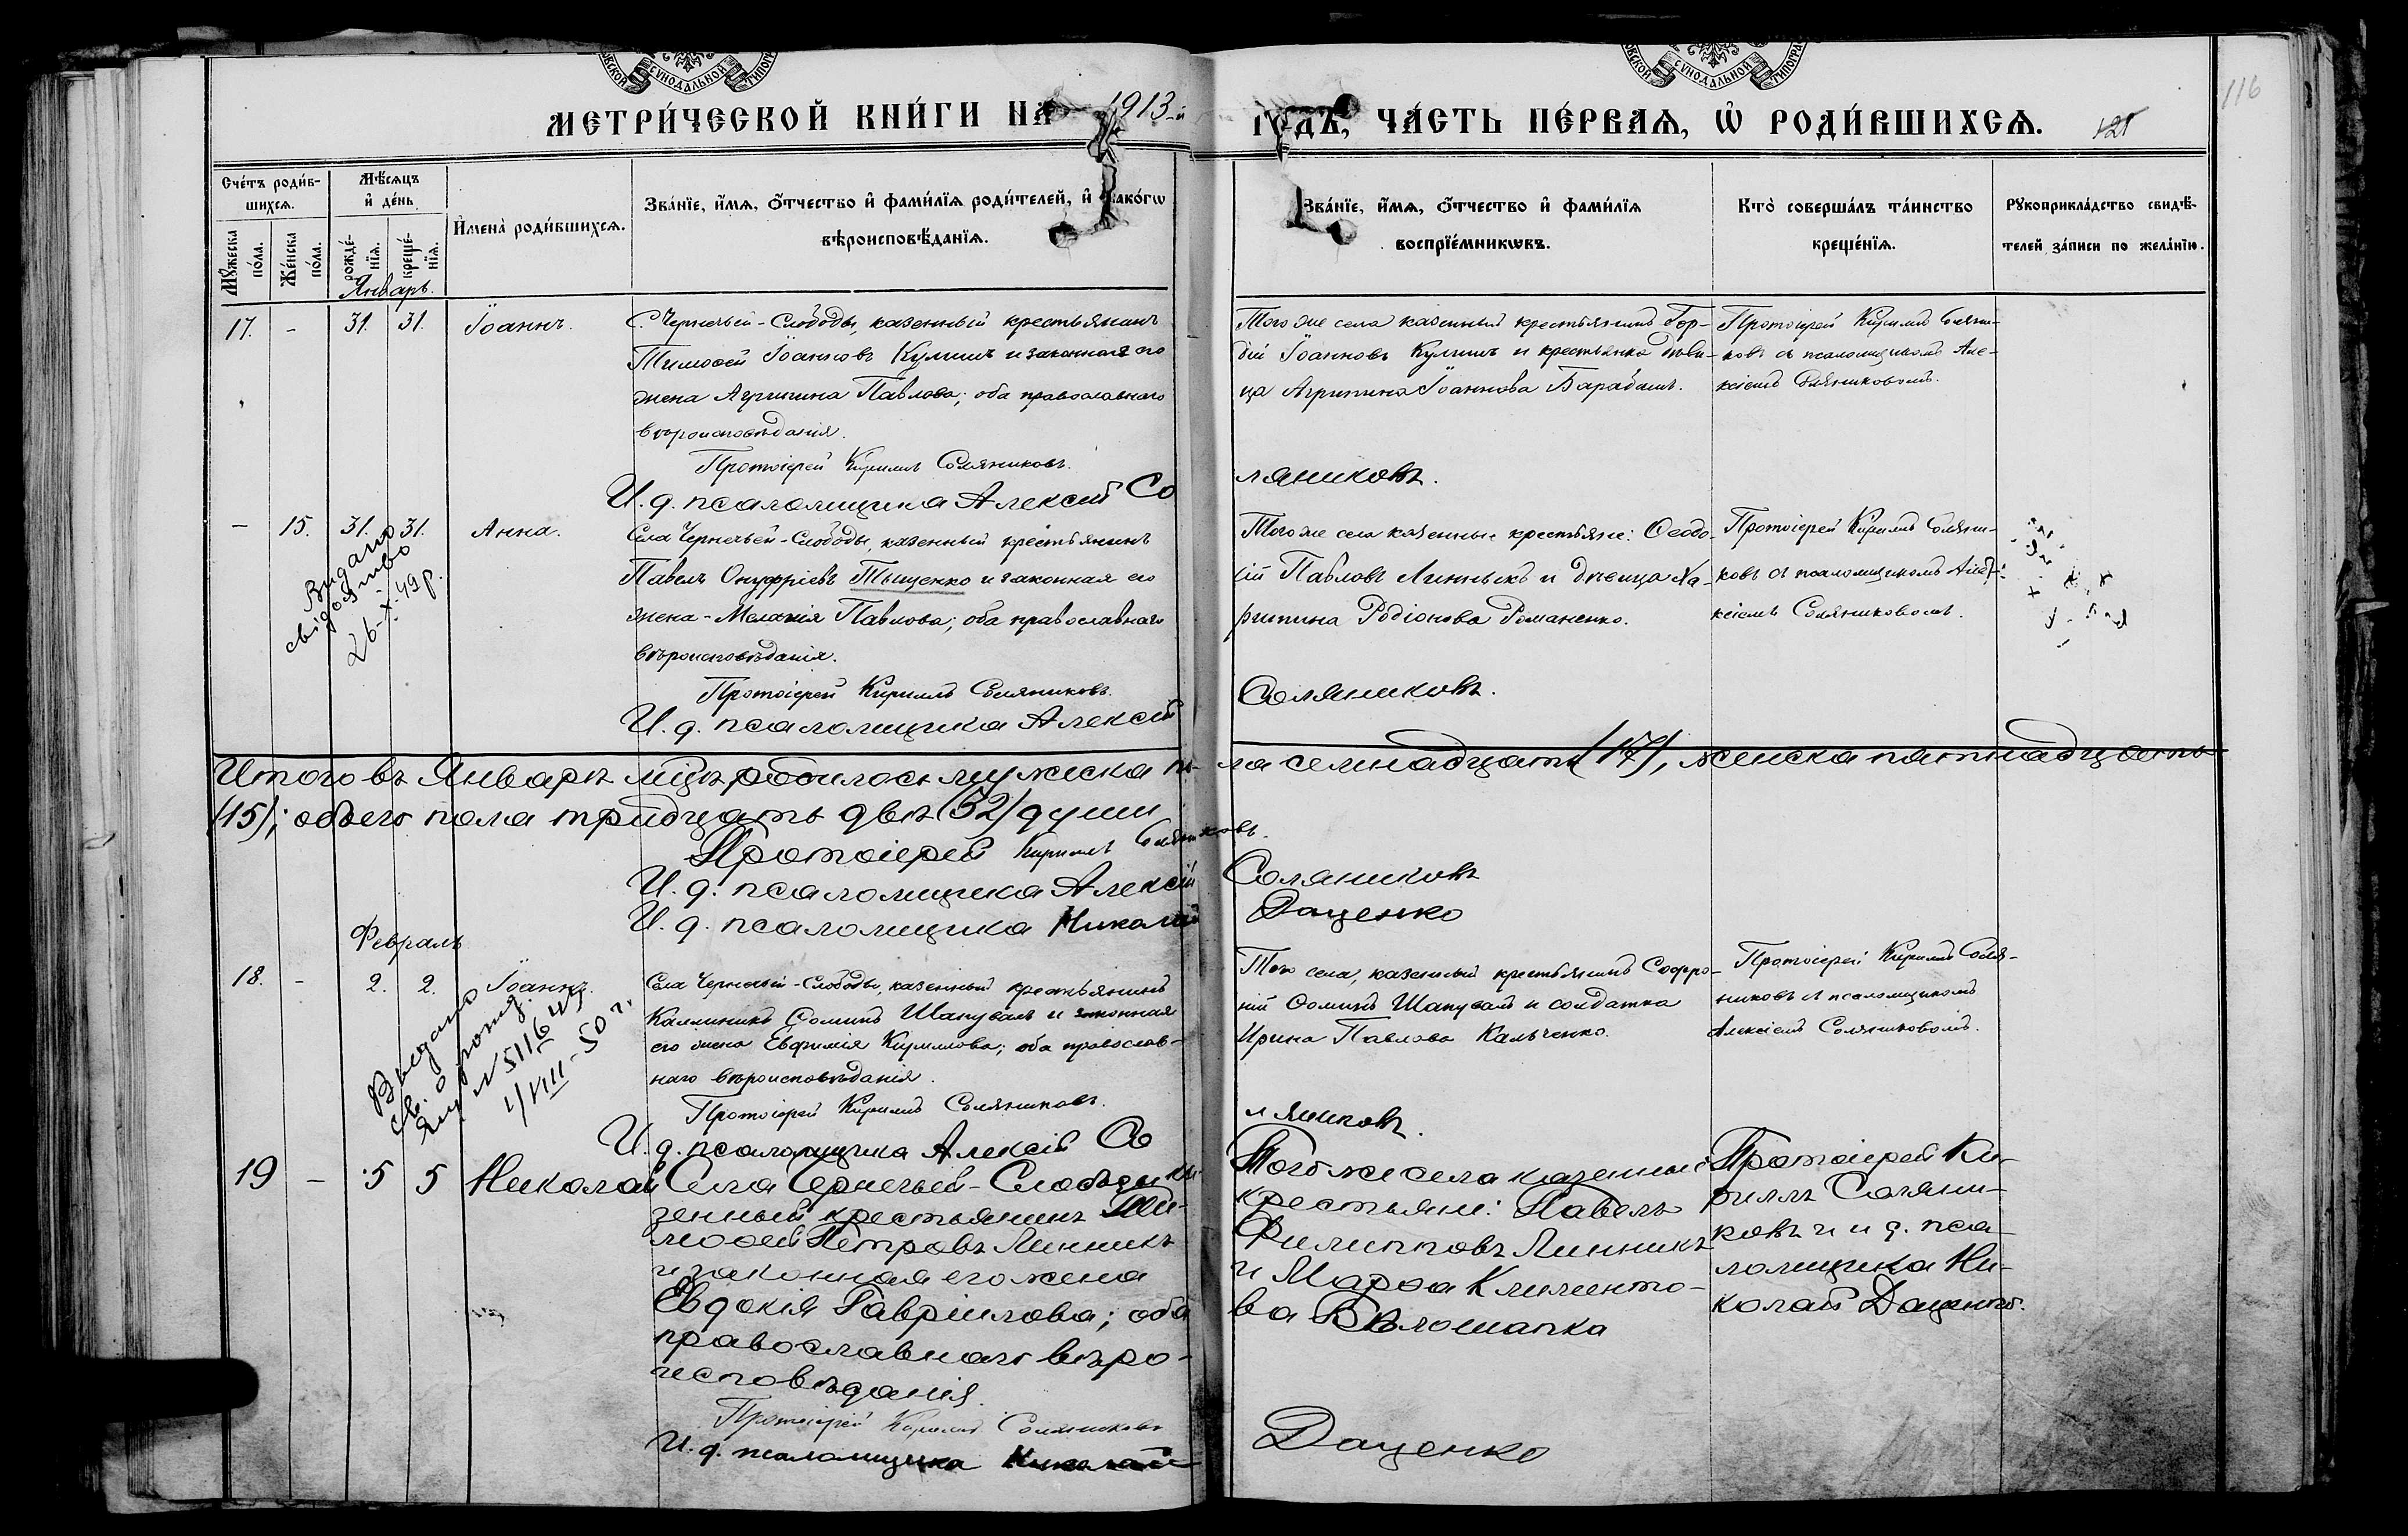 МЕТРИ́ЧЕСКОЙ КНИ́ГИ НА 1913-й ГОДЪ, ЧА́СТЬ ПЕ́РВАѦ, Ѡ҆ РОДИ́ВШИХСѦ.
116
Сче́тъ роди́в-
шихсѧ.
Мꙋ́жеска по́ла.
Же́нска по́ла.
Мѣ́сѧцъ
и҆ де́нь.
рожде́-
нїѧ.
креще́-
нїѧ.
И҆мена̀ роди́вшихсѧ.
Зва́нїе, и҆́мѧ, ѻ҆́тчество и҆ фами́лїѧ роди́телей, и҆ како́гѡ
вѣроисповѣ́данїѧ.
Зва́нїе, и҆́мѧ, ѻ҆́тчество и҆ фами́лїѧ
воспрїе́мникѡвъ.
Кто̀ соверша́лъ та́инство
креще́нїѧ.
Рꙋкоприкла́дство свидѣ́-
телей за́писи по жела́нїю.
Январь.
17. - 31. 31. Іоаннъ.
С. Чернечьей-Слободы, казенный крестьянинъ
Тимоѳей Іоанновъ Кулишъ и законная его
жена Агрипина Павлова; оба православнаго
вѣроисповѣданія.
Протоіерей Кириллъ Соляниковъ.
И. д. псаломщика Алексій Со
ляниковъ.
Того же села казенный крестьянинъ Гор-
дій Іоанновъ Кулишъ и крестьянка дѣви-
ца Агрипина Іоаннова Барабашъ.
Протоіерей Кириллъ Соляни-
ковъ съ псаломщикомъ Але-
ксіемъ Соляниковомъ.
- 15. 31. 31. Анна.
Видано
свідоцтво
26-X-49 р.
Села Чернечьей-Слободы, казенный крестьянинъ
Павелъ Онуфріевъ Тыщенко и законная его
жена - Меланія Павлова; оба православнаго
вѣроисповѣданія.
Протоіерей Кириллъ Соляниковъ.
И. д. псаломщика Алексій
Соляниковъ.
Того же села казенные крестьяне: Ѳеодо-
сій Павловъ Линныкъ и дѣвица Ха-
ритина Родіонова Романенко.
Протоіерей Кириллъ Соляни-
ковъ съ псаломщикомъ Але-
ксіемъ Соляниковомъ.
Итого въ Январѣ мцѣ родилось мужеска по-ла семнадцать (17), женска пятнадцать
(15); обоего пола тридцать двѣ (32) души
Протоіерей Кириллъ Соляниковъ.
И. д. псаломщика Алексій Соляниковъ
И. д. псаломщика Николай Даценко
Февраль
18. - 2. 2. Іоаннъ.
Видано
св. о рожд.
1/VIII-50 г.
Села Чернечьей-Слободы, казенный крестьянинъ
Каллиникъ Ѳоминъ Шаповалъ и законная
его жена Евфимія Кириллова; оба православ-
наго вѣроисповѣданія.
Протоіерей Кириллъ Соляниковъ.
И. д. псаломщика Алексій Со
ляниковъ.
Того села, казенный крестьянинъ Софро-
ній Ѳоминъ Шаповалъ и солдатка
Ирина Павлова Кальченко.
Протоіерей Кириллъ Соля-
никовъ съ псаломщикомъ
Алексіемъ Соляниковомъ.
19 - 5 5 Николай
Села Чернечьей-Слободы ка-
зенный крестьянинъ Ти-
моѳей Петровъ Линникъ
и законная его жена
Евдокія Гавріилова; оба
православнаго вѣро-
исповѣданія.
Протоіерей Кириллъ Соляниковъ
И. д. псаломщика Николай
Даценко
Того же села казенные
крестьяне: Павелъ
Филипповъ Линникъ
и Марѳа Клименто-
ва Бѣлошапка
Протоіерей Ки-
риллъ Соляни-
ковъ и и. д. пса-
ломщика Ни-
колай Даценко.